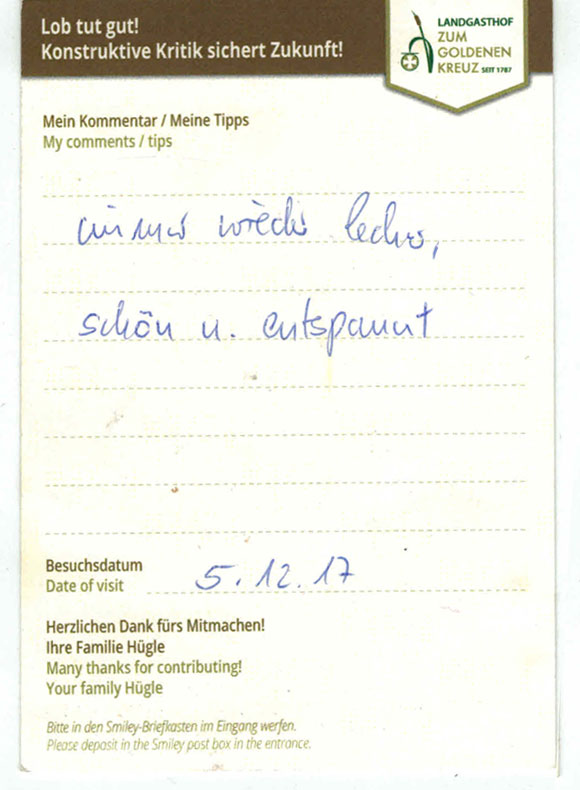 Lob tut gut!
Konstruktive Kritik sichert Zukunft!
LANDGASTHOF
ZUM
GOLDENEN
KREUZ SEIT 1787
Mein Kommentar / Meine Tipps
My comments / tips
immer wieder lecker,
schön u. entspannt
Besuchsdatum
Date of visit 5.12.17
Herzlichen Dank fürs Mitmachen!
Ihre Familie Hügle
Many thanks for contributing!
Your family Hügle
Bitte in den Smiley-Briefkasten im Eingang werfen.
Please deposit in the Smiley post box in the entrance.